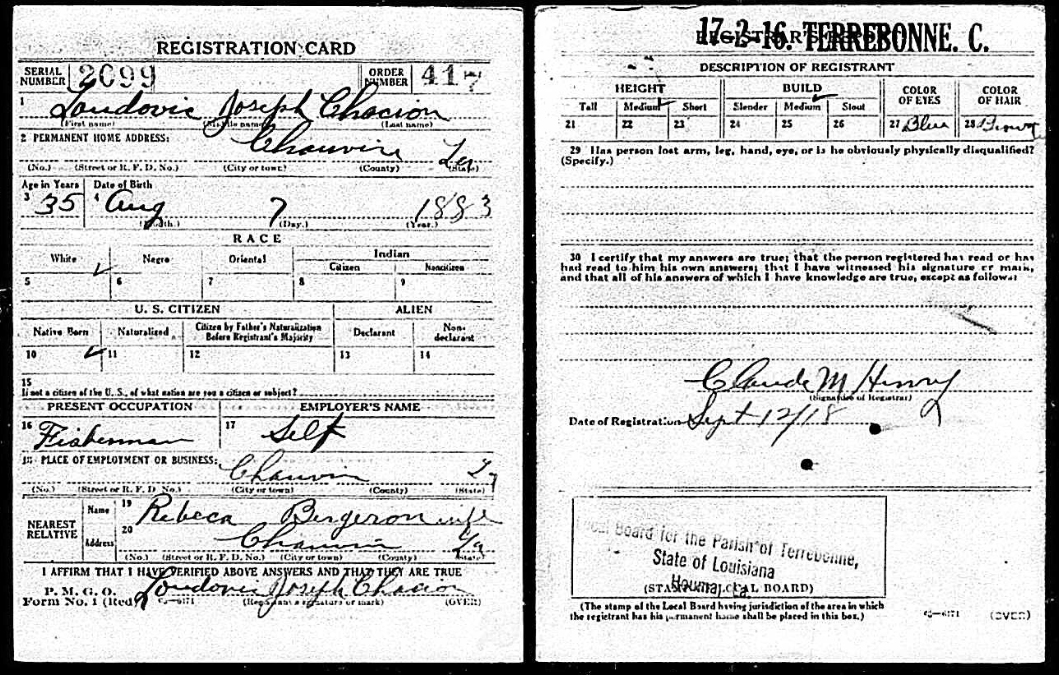 REGISTRATION CARD
SERIAL NUMBER 2099 ORDER NUMBER 417
1 Loudovic Joseph Chacion
(First name) (Middle name) (Last name)
2 PERMANENT HOME ADDRESS:
Chauvin La
(No.) (Street or R. F. D. No.) (City or town) (County) (State)
Age in Years Date of Birth
3 35 4 Aug 7 1883
(Month.) (Day.) (Year.)
RACE
White Negro Oriental Indian
Citizen Noncitizen
5 6 7 8 9
U. S. CITIZEN ALIEN
Native Born Naturalized Citizen by Father's Naturalization Before Registrant's Majority Declarant Non-declarant
10 11 12 13 14
15
If not a citizen of the U. S., of what nation are you a citizen or subject?
PRESENT OCCUPATION EMPLOYER'S NAME
16 Fisherman 17 Self
18 PLACE OF EMPLOYMENT OR BUSINESS:
Chauvin La
(No.) (Street or R. F. D. No.) (City or town) (County) (State)
NEAREST RELATIVE
Name 19 Rebeca Bergeron wife
Address 20 Chauvin La
(No.) (Street or R. F. D. No.) (City or town) (County) (State)
I AFFIRM THAT I HAVE VERIFIED ABOVE ANSWERS AND THAT THEY ARE TRUE
P. M. G. O.
Form No. 1 (Red) Loudovic Joseph Chacion
(Registrant's signature or mark) (OVER)
17-2-16. TERREBONNE. C.
REGISTRAR'S REPORT
DESCRIPTION OF REGISTRANT
HEIGHT BUILD COLOR OF EYES COLOR OF HAIR
Tall Medium Short Slender Medium Stout
21 22 23 24 25 26 27 Blue 28 Brown
29 Has person lost arm, leg, hand, eye, or is he obviously physically disqualified?
(Specify.)
30 I certify that my answers are true; that the person registered has read or has
had read to him his own answers; that I have witnessed his signature or mark,
and that all of his answers of which I have knowledge are true, except as follows:
Claude M Henry
(Signature of Registrar)
Date of Registration Sept 12/18
Local Board for the Parish of Terrebonne,
State of Louisiana
Houma, La.
(STAMP OF LOCAL BOARD)
(The stamp of the Local Board having jurisdiction of the area in which
the registrant has his permanent home shall be placed in this box.)
(OVER)